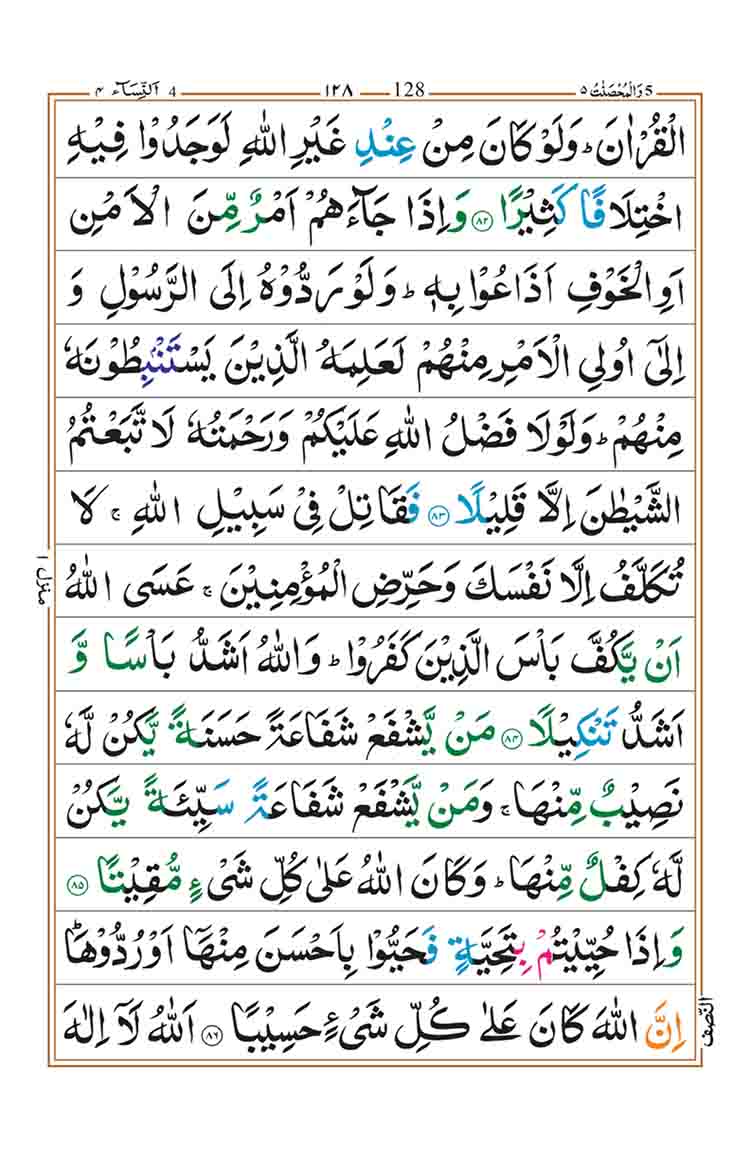 4 اَلنِّسَآء ۴ ۱۲۸ 128 وَالْمُحْصَنٰتُ ۵ 5
الْقُرْاٰنَ ؕ وَلَوْ كَانَ مِنْ عِنْدِ غَيْرِ اللّٰهِ لَوَجَدُوْا فِيْهِ
اخْتِلَافًا كَثِيْرًا ﴿۸۲﴾ وَاِذَا جَآءَهُمْ اَمْرٌ مِّنَ الْاَمْنِ
اَوِ الْخَوْفِ اَذَاعُوْا بِهٖ ؕ وَلَوْ رَدُّوْهُ اِلَى الرَّسُوْلِ وَ
اِلٰٓى اُولِى الْاَمْرِ مِنْهُمْ لَعَلِمَهُ الَّذِيْنَ يَسْتَنْۢبِطُوْنَهٗ
مِنْهُمْ ؕ وَلَوْلَا فَضْلُ اللّٰهِ عَلَيْكُمْ وَرَحْمَتُهٗ لَاتَّبَعْتُمُ
الشَّيْطٰنَ اِلَّا قَلِيْلًا ﴿۸۳﴾ فَقَاتِلْ فِىْ سَبِيْلِ اللّٰهِ ۚ لَا
تُكَلَّفُ اِلَّا نَفْسَكَ وَحَرِّضِ الْمُؤْمِنِيْنَ ۚ عَسَى اللّٰهُ
اَنْ يَّكُفَّ بَاْسَ الَّذِيْنَ كَفَرُوْا ؕ وَاللّٰهُ اَشَدُّ بَاْسًا وَّ
اَشَدُّ تَنْكِيْلًا ﴿۸۴﴾ مَنْ يَّشْفَعْ شَفَاعَةً حَسَنَةً يَّكُنْ لَّهٗ
نَصِيْبٌ مِّنْهَا ۚ وَمَنْ يَّشْفَعْ شَفَاعَةً سَيِّئَةً يَّكُنْ
لَّهٗ كِفْلٌ مِّنْهَا ؕ وَكَانَ اللّٰهُ عَلٰى كُلِّ شَىْءٍ مُّقِيْتًا ﴿۸۵﴾
وَاِذَا حُيِّيْتُمْ بِتَحِيَّةٍ فَحَيُّوْا بِاَحْسَنَ مِنْهَآ اَوْ رُدُّوْهَا ؕ
اِنَّ اللّٰهَ كَانَ عَلٰى كُلِّ شَىْءٍ حَسِيْبًا ﴿۸۶﴾ اَللّٰهُ لَآ اِلٰهَ
منزل ۱
النصف